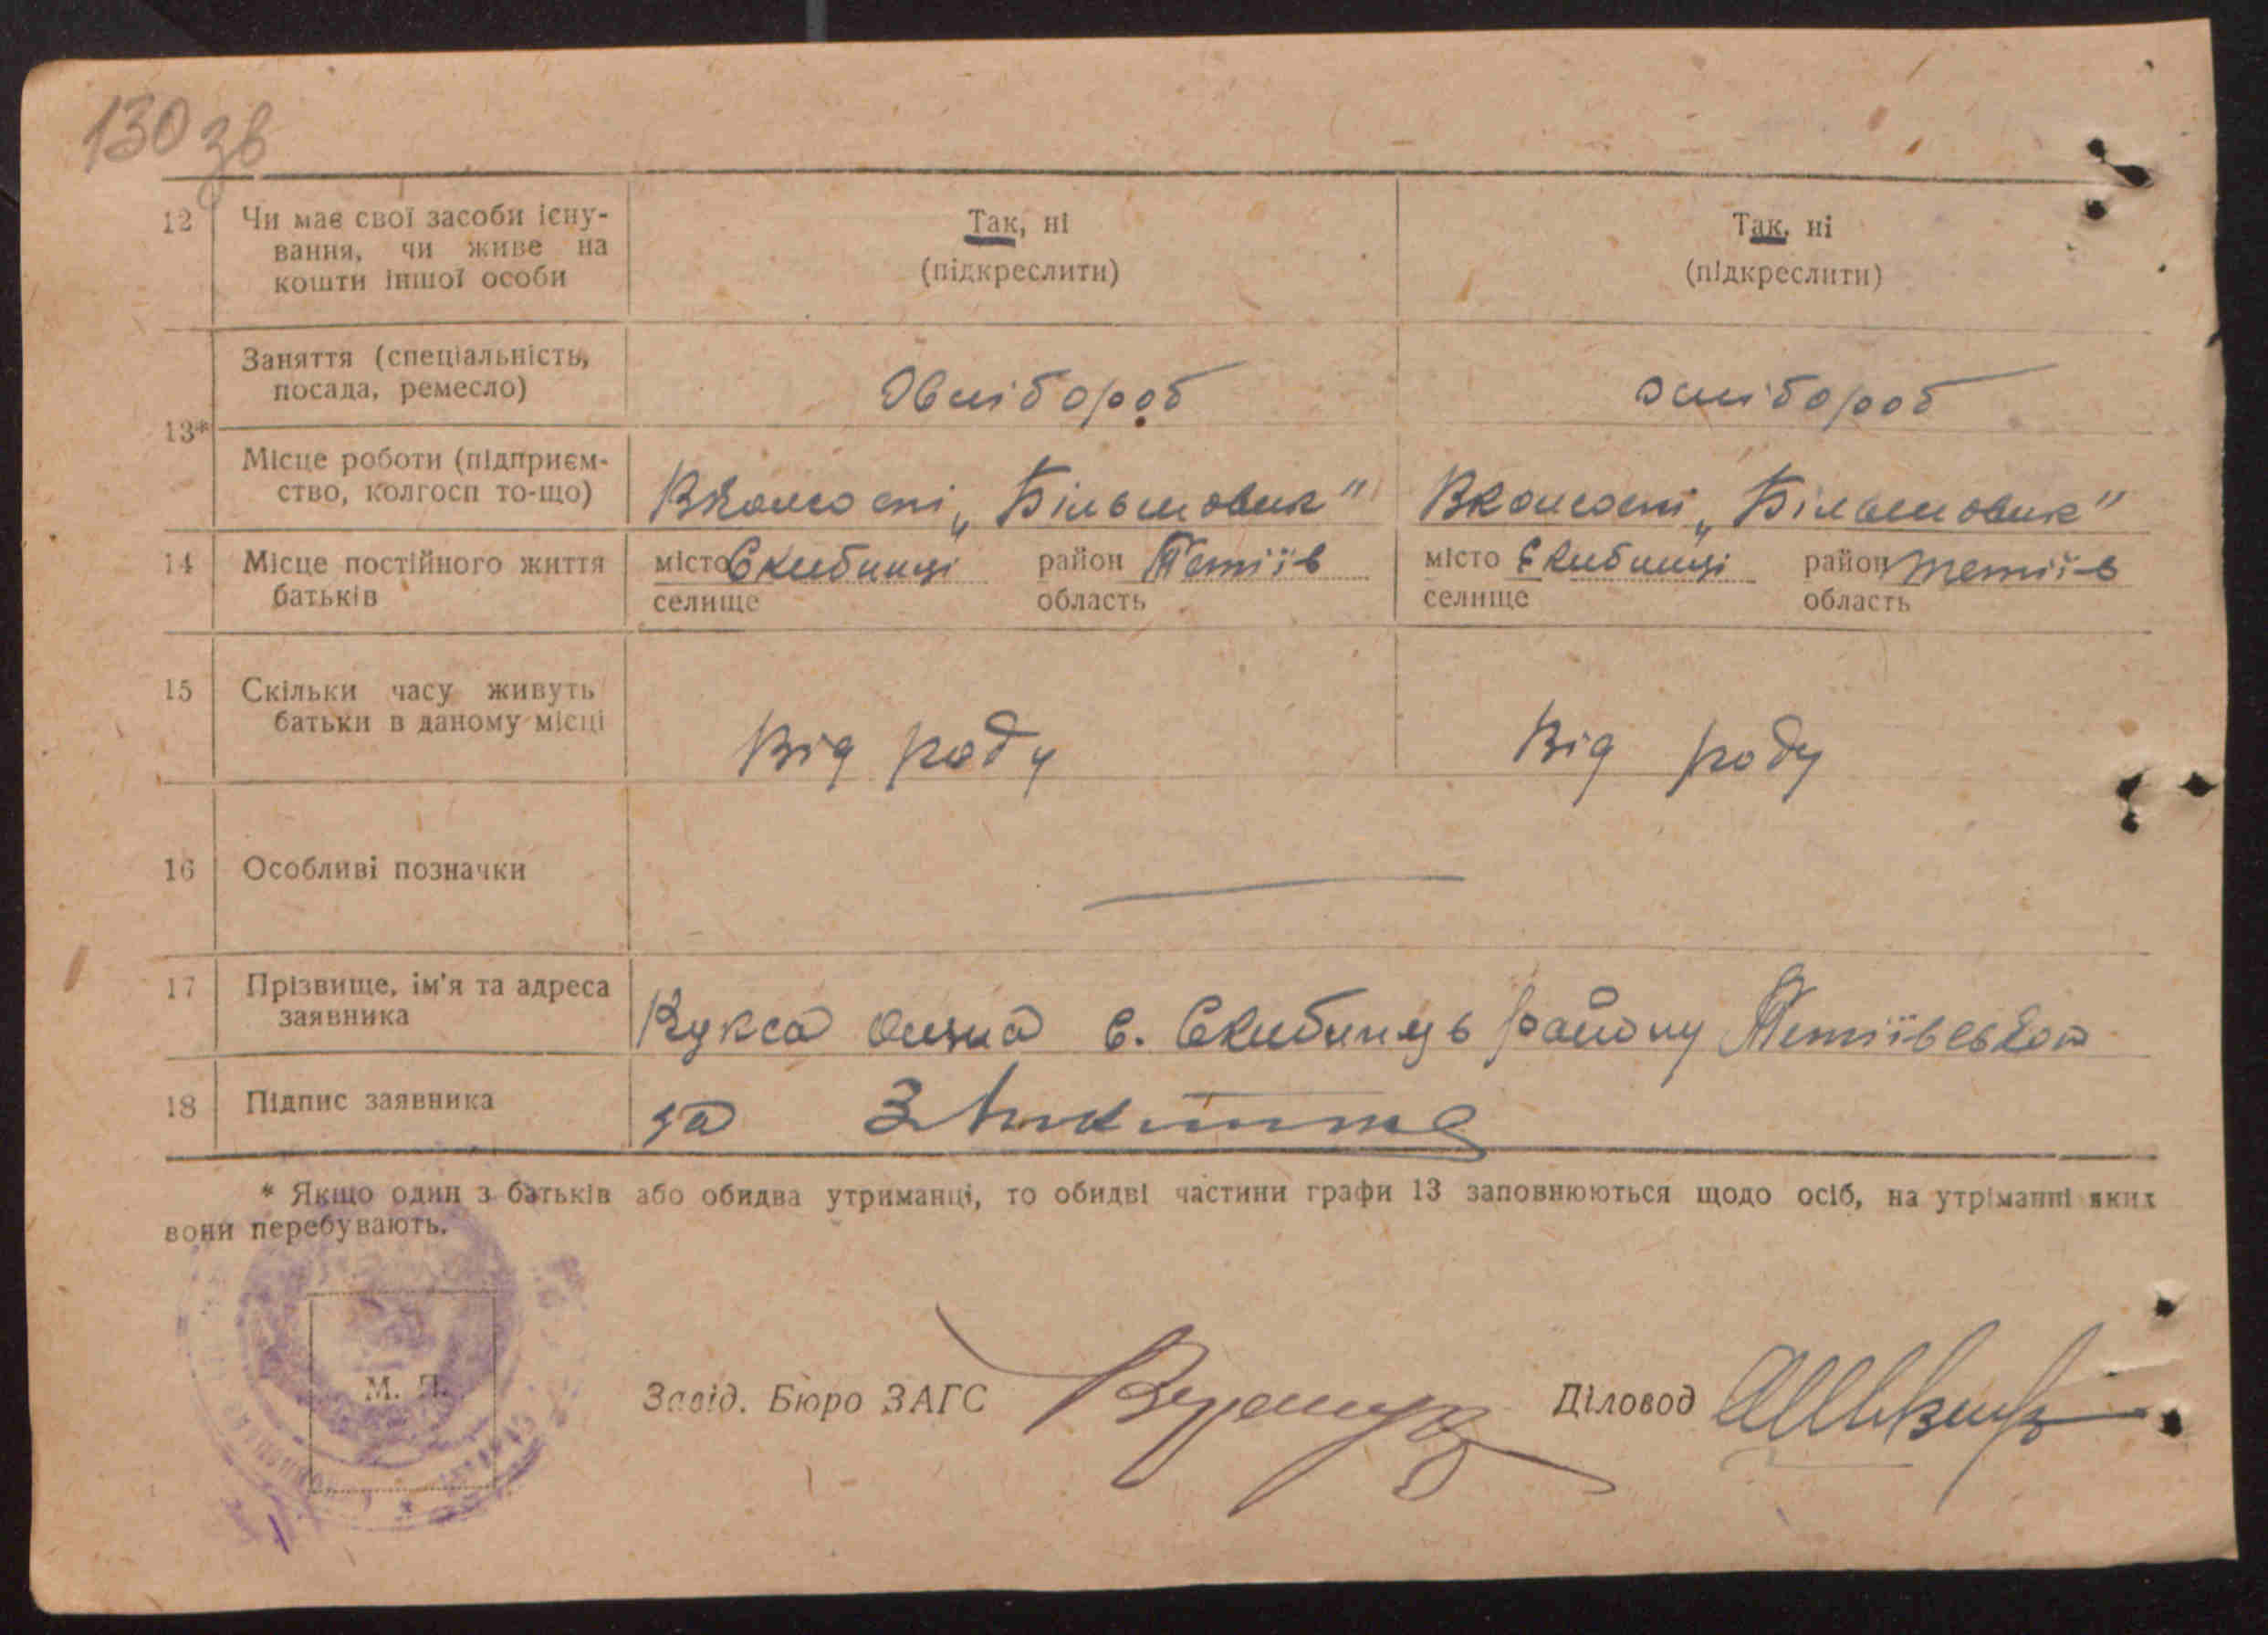 130 зв
12 Чи має свої засоби існу-
вання, чи живе на
кошти іншої особи
Так, ні
(підкреслити)
Так, ні
(підкреслити)
13*
Заняття (спеціальність,
посада, ремесло)
хлібороб
хлібороб
Місце роботи (підприєм-
ство, колгосп то-що)
Вколгоспі „Більшовик"
Вколгоспі „Більшовик"
14 Місце постійного життя
батьків
місто Скибинці район Тетіїв
селище область
місто Скибинці район Тетіїв
селище область
15 Скільки часу живуть
батьки в даному місці
Від роду
Від роду
16 Особливі позначки
17 Прізвище, ім'я та адреса
заявника
Кукса с. Скибинць району Тетіївського
18 Підпис заявника
за
* Якщо один з батьків або обидва утриманці, то обидві частини графи 13 заповнюються щодо осіб, на утріманні яких
вони перебувають.
М. П.
Завід. Бюро ЗАГС
Діловод